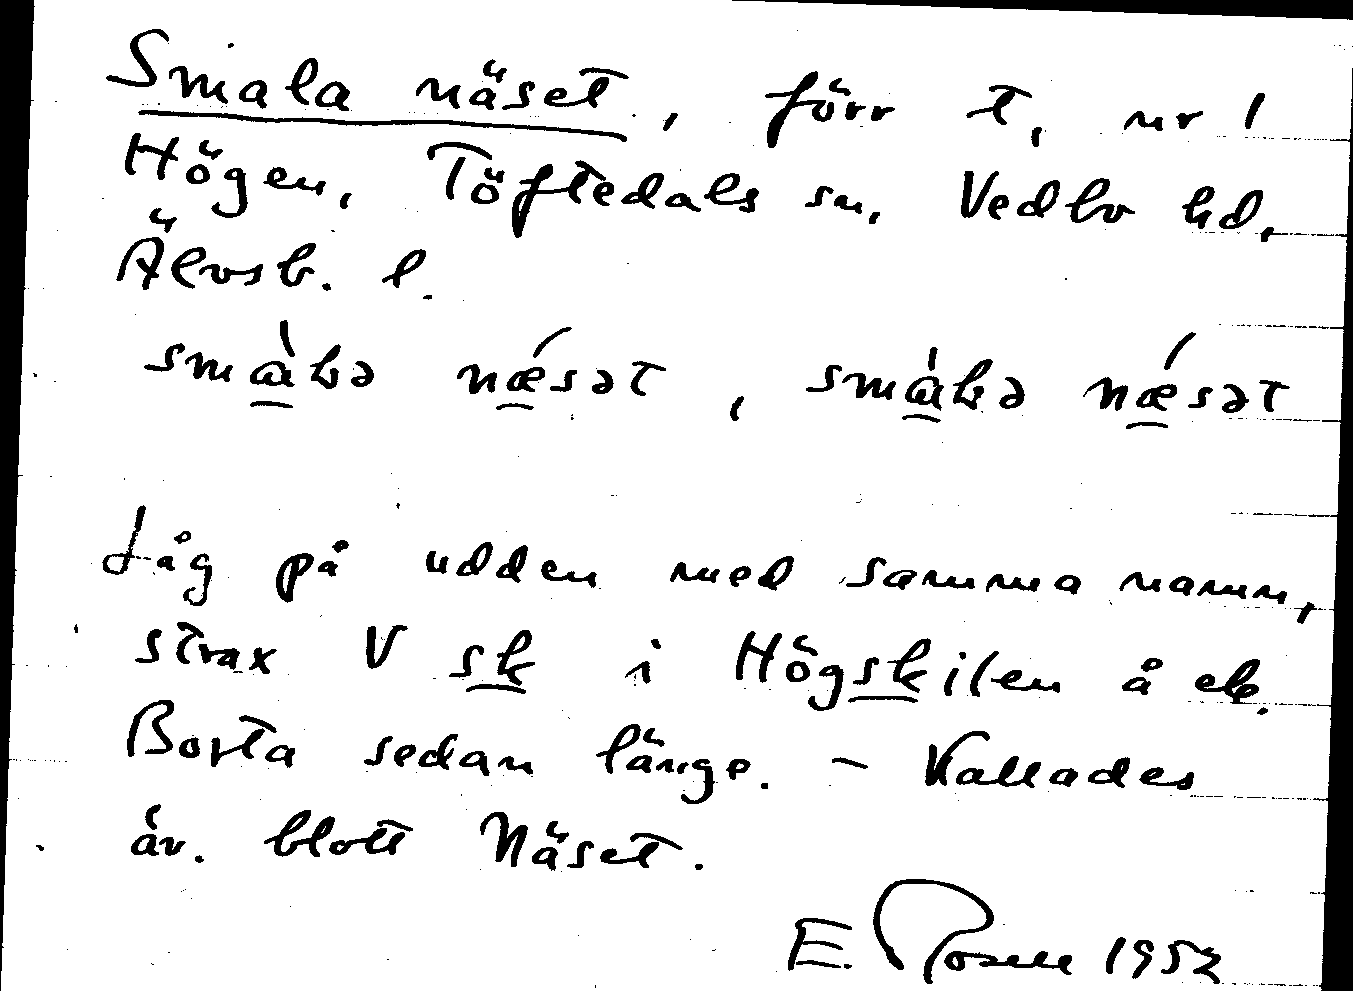 Smala näset, förr t, nr 1
Högen, Töftedals sn, Vedbo hd,
Älvsb. l.
smàɫə nǽsət, smàɫə nǽsət
Låg på udden med samma namn,
strax V sk i Högskilen å ek.
Borta sedan länge. – Kallades
äv. blott Näset.
E. Rosell 1952